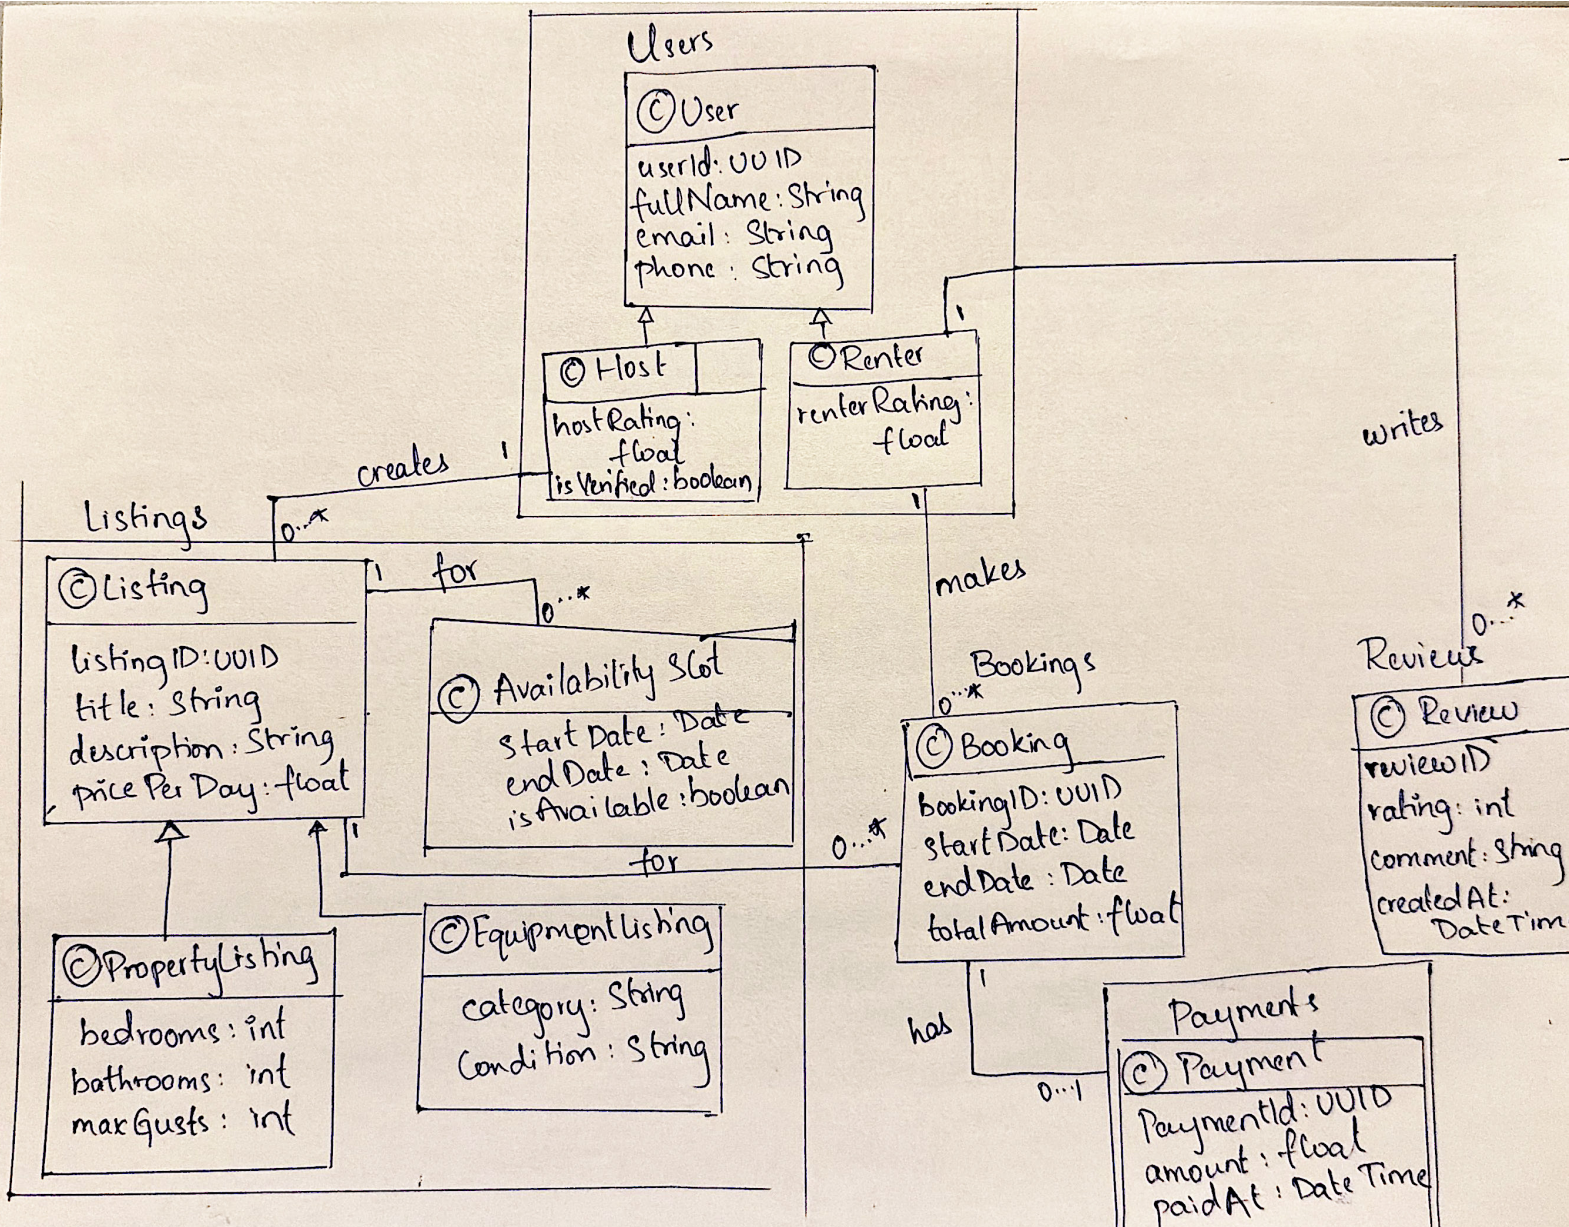 Users
© User
userId: UUID
fullName: String
email: String
phone: String
© Host
hostRating:
float
isVerified: boolean
© Renter
renterRating:
float
1
writes
0...*
creates
1
0...*
1
makes
0...*
Listings
© Listing
listingID: UUID
title: String
description: String
pricePerDay: float
1
for
0...*
© Availability Slot
startDate: Date
endDate: Date
isAvailable: boolean
1
for
0...*
© PropertyListing
bedrooms: int
bathrooms: int
maxGusts: int
© EquipmentListing
category: String
Condition: String
Bookings
© Booking
bookingID: UUID
startDate: Date
endDate: Date
totalAmount: float
1
has
0...1
Reviews
© Review
reviewID
rating: int
comment: String
createdAt:
DateTim
Payments
© Payment
PaymentId: UUID
amount: float
paidAt: DateTime